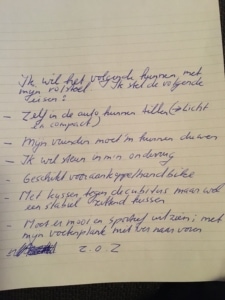 Ik wil het volgende kunnen, met
mijn rolstoel. Ik stel de volgende
eisen:
- Zelf in de auto kunnen tillen (→ licht
en compact)
- Mijn vrienden moet 'm kunnen duwen
- Ik wil steun in m'n onderrug
- Geschikt voor aankoppel/handbike
- Met kussen tegen decubitus maar wel
een stabiel zittend kussen
- Moet er mooi en sportief uitzien; met
mijn voetenplank niet ver naar voren
z.o.z